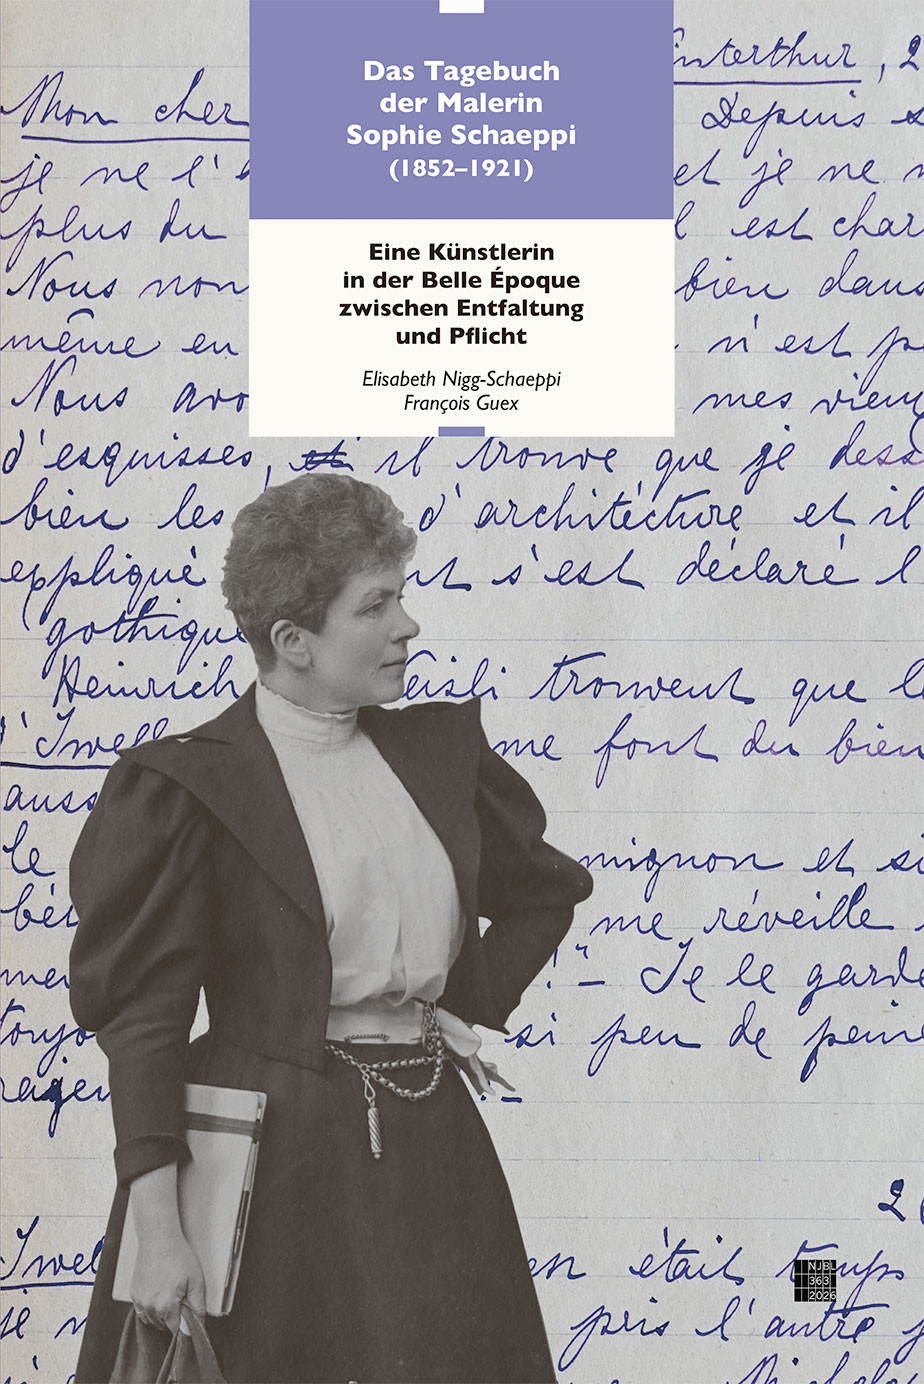 Das Tagebuch
der Malerin
Sophie Schaeppi
(1852–1921)
Eine Künstlerin
in der Belle Époque
zwischen Entfaltung
und Pflicht
Elisabeth Nigg-Schaeppi
François Guex
interthur, 2
Mon cher Depuis s
je ne l' et je ne n
plus du l est char
Nous non bien dans
même en n'est pa
Nous avo mes vieu
d'esquisses, il trouve que je dess
bien les d'architécture et il
expliqué nt s'est déclaré l
gothique
Heinrich eisli trouvent que l
d'Iwell me font du bien
auss
le mignon et si
bét me réveille
mei !"– Je le garde
toujo si peu de pein
rager –
2
Iwel en était temps
je n pris l'autre j
NJBL
363
2026